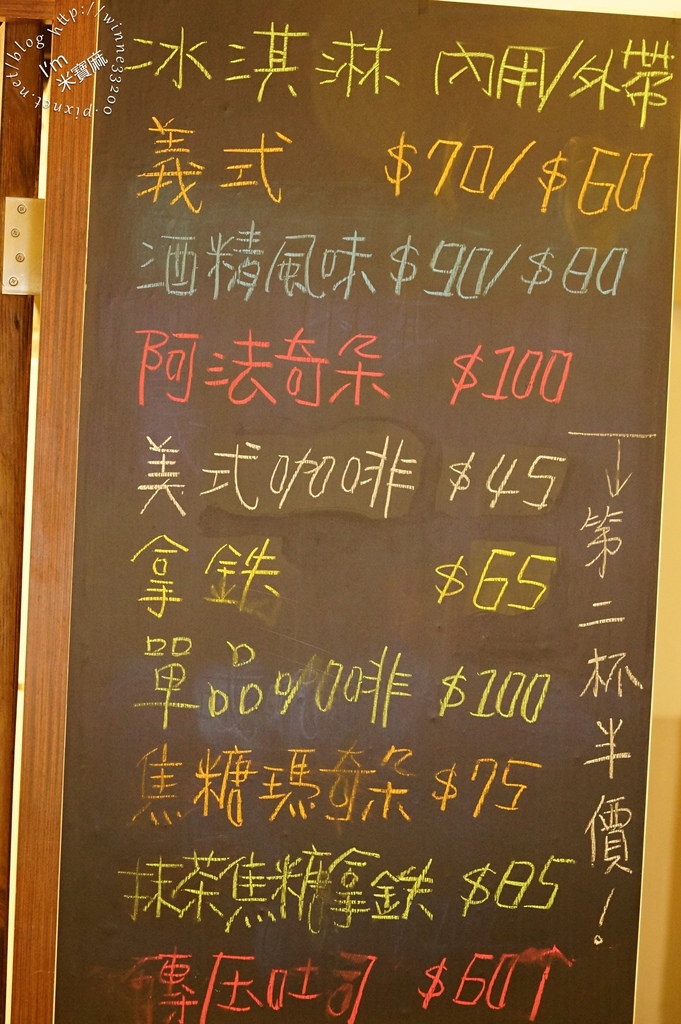 冰淇淋 內用/外帶
義式 $70/$60
酒精風味 $90/$80
阿法奇朵 $100
美式咖啡 $45
拿鉄 $65
單品咖啡 $100
焦糖瑪奇朵 $75
抹茶焦糖拿鉄 $85
磚压吐司 $60↑
↓第二杯半價!
http://winne33200.pixnet.net/blog
I'm
米寶麻